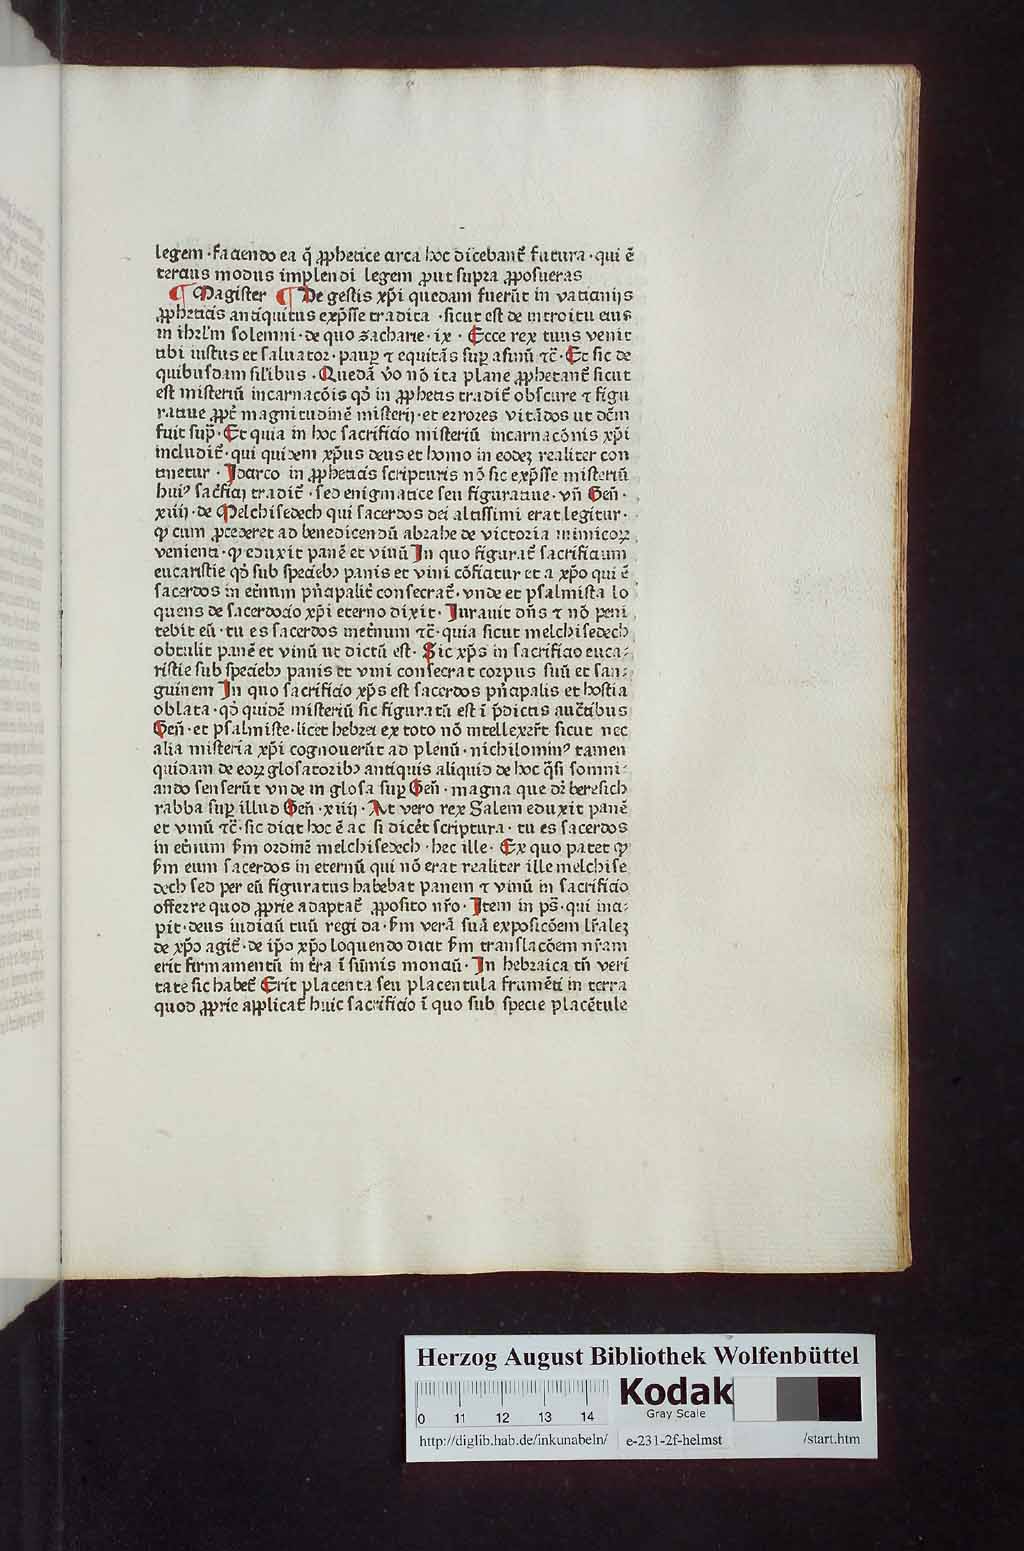 legem · faciendo ea q̄ ꝓphetice circa hoc dicebant᷑ futura · qui ē
tercius modus implendi legem ꝓut supra ꝓposueras
¶ Magister ¶ De gestis xp̄i quedam fuerūt in vaticinijs
ꝓpheticis antiquitus exp̄sse tradita · sicut est de introitu eius
in ihrl̄m solemni · de quo zacharie · ix · Ecce rex tuus venit
tibi iustus et saluator · paup̱ ⁊ equitās sup̱ asinū ⁊c̄ · Et sic de
quibusdam sil̄ibus · Quedā v̄o nō ita plane ꝓphetant᷑ sicut
est misteriū incarnac̄ois qd̄ in ꝓphetis tradit᷑ obscure ⁊ figu
ratiue ꝓpt̄ magnitudinē misterij · et errores vitādos ut dc̄m
fuit sup̄ · Et quia in hoc sacrificio misteriū incarnac̄onis xp̄i
includit᷑ · qui quidem xp̄us deus et homo in eodeȝ realiter con
tinetur · Idcirco in ꝓpheticis scripturis nō sic exp̄sse misteriū
huiꝰ sac̄ficij tradit᷑ · sed enigmatice seu figuratiue · vn̄ Gen̄ ·
xiiij · de Melchisedech qui sacerdos dei altissimi erat legitur ·
ꝙ cum ꝓcederet ad benedicendū abrahe de victoria inimicoꝝ
venienti · ꝙ eduxit panē et vinū In quo figurat᷑ sacrificium
eucaristie qd̄ sub speciebꝫ panis et vini cōficiatur et a xp̄o qui ē
sacerdos in et̄num pn̄cipalit̄ consecrat᷑ · vnde et psalmista lo
quens de sacerdocio xp̄i eterno dixit · Iurauit dn̄s ⁊ nō peni
tebit eū · tu es sacerdos inet̄num ⁊c̄ · quia sicut melchisedech
obtulit panē et vinū ut dictū est · Sic xp̄s in sacrificio euca⸗
ristie sub speciebꝫ panis et vini consecrat corpus suū et san⸗
guinem In quo sacrificio xp̄s est sacerdos pn̄cipalis et hostia
oblata · qd̄ quidē misteriū sic figuratū est ī p̄dictis auc̄tibus
Gen̄ · et psalmiste · licet hebrei ex toto nō intellexer̄t sicut nec
alia misteria xp̄i cognouerūt ad plenū · nichilominꝰ tamen
quidam de eoꝝ glosatoribꝫ antiquis aliquid de hoc q̄si somni⸗
ando senserūt vnde in glosa sup̱ Gen̄ · magna que dr̄ beresich
rabba sup̱ illud Gen̄ · xiiij · At vero rex Salem eduxit panē
et vinū ⁊c̄ · sic dicit hoc ē ac si dicēt scriptura · tu es sacerdos
in et̄num s̄m ordinē melchisedech · hec ille · Ex quo patet ꝙ
s̄m eum sacerdos in eternū qui nō erat realiter ille melchise
dech sed per eū figuratus habebat panem ⁊ vinū in sacrificio
offerre quod ꝓprie adaptat᷑ ꝓposito nr̄o · Item in ps̄ · qui inci⸗
pit · deus iudiciū tuū regi da · s̄m verā suā exposic̄oem lr̄aleȝ
de xp̄o agit᷑ · de ip̄o xp̄o loquendo dicit s̄m translac̄oem nr̄am
erit firmamentū in t̄ra ī sūmis monciū · In hebraica tn̄ veri
tate sic habet᷑ Erit placenta seu placentula frumēti in terra
quod ꝓprie applicat᷑ huic sacrificio ī quo sub specie placētule
Herzog August Bibliothek Wolfenbüttel
0 11 12 13 14
Kodak
Gray Scale
http://diglib.hab.de/inkunabeln/ e-231-2f-helmst /start.htm